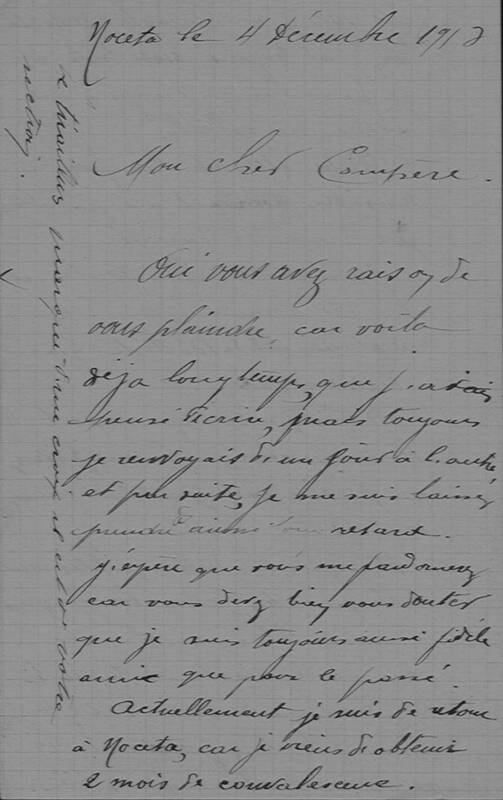 Noceta le 4 Décembre 191
Mon cher Compère.
Oui vous avez raison de
vous plaindre, car voila
déja longtemps, que j'avais
pensé d'écrire, mais toujours
je renvoyais de un jour à l'autre
et par suite, je me suis laissez
prendre aussi retard.
j'éspère que vous me pardonnerez
car vous devez bien vous douter
que je suis toujours aussi fidéle
amie que pour le passé.
Actuellement je suis de retour
à Noceta, car je viens de obtenir
2 mois de convalescence.
d'une croix et votre